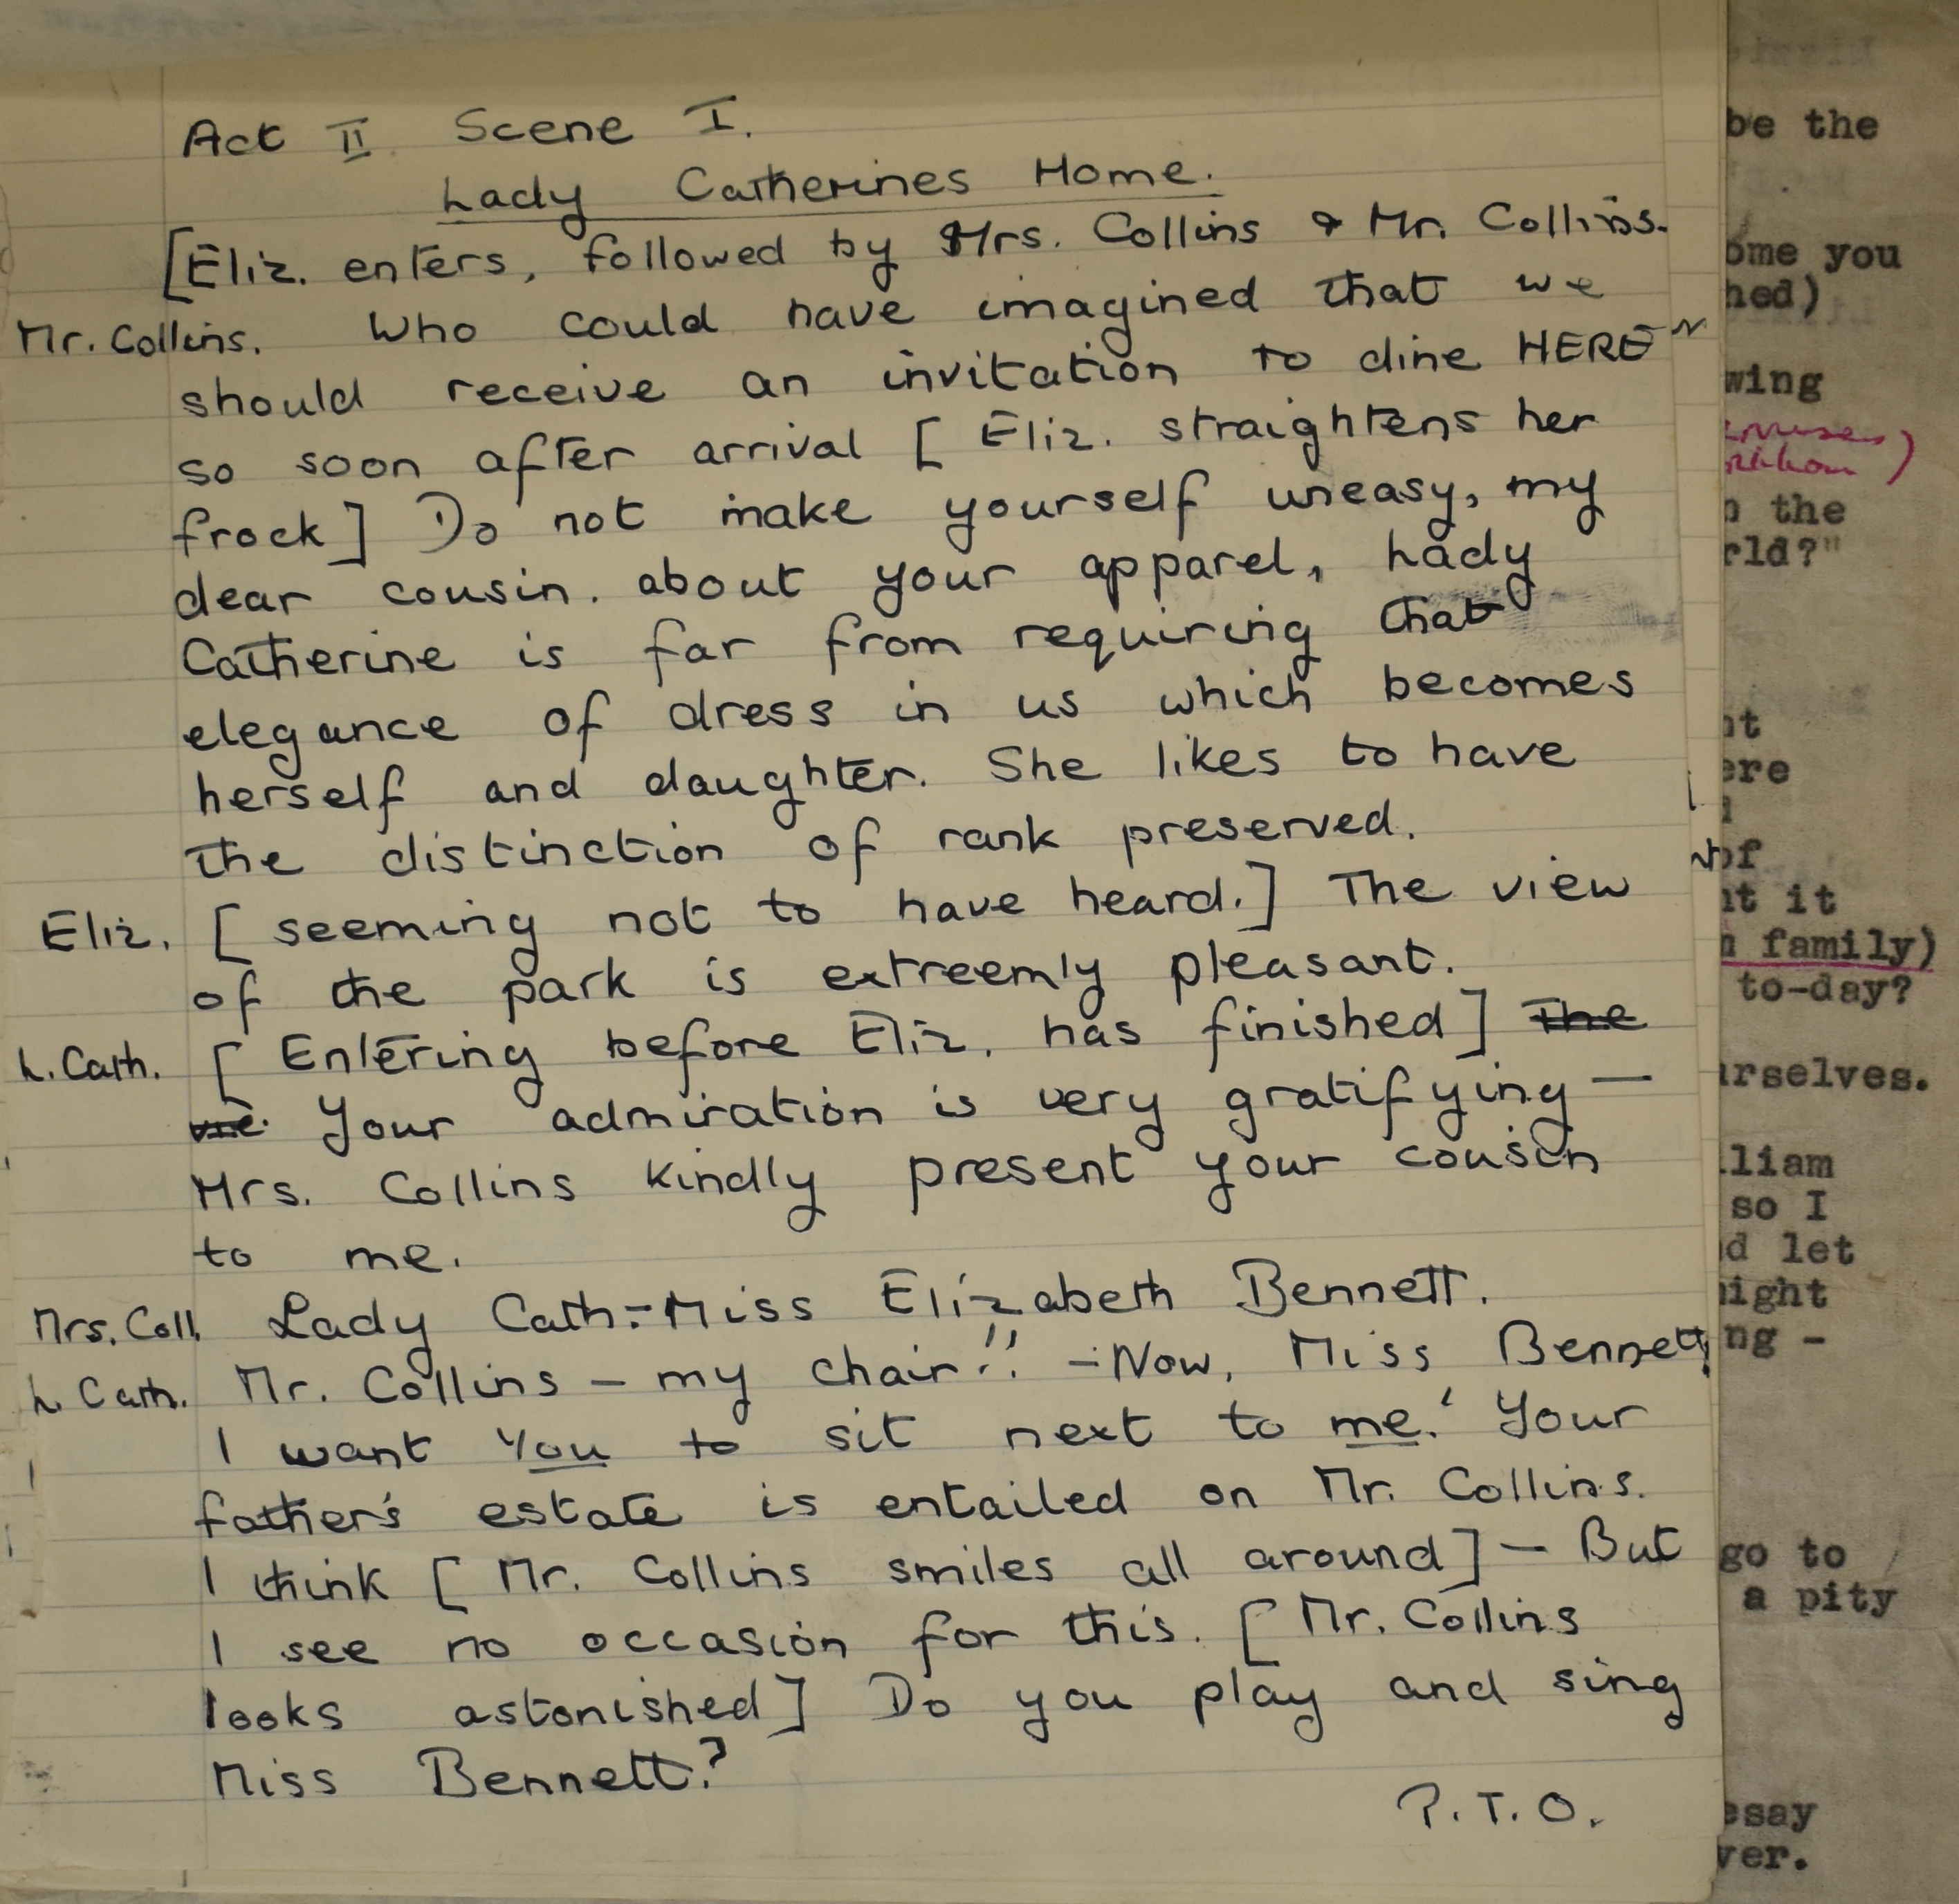 Act II Scene I.
Lady Catherines Home.
[Eliz. enters, followed by Mrs. Collins & Mr. Collins.
Mr. Collins. Who could have imagined that we
should receive an invitation to dine HERE
so soon after arrival [ Eliz. straightens her
frock] Do not make yourself uneasy, my
dear cousin. about your apparel, Lady
Catherine is far from requiring that
elegance of dress in us which becomes
herself and daughter. She likes to have
the distinction of rank preserved.
Eliz. [ seeming not to have heard.] The view
of the park is extreemly pleasant.
L. Cath. [ Entering before Eliz. has finished] The
Your admiration is very gratifying —
Mrs. Collins kindly present your cousin
to me.
Mrs. Coll. Lady Cath:- Miss Elizabeth Bennett.
L Cath. Mr. Collins - my chair!! - Now, Miss Bennett,
I want you to sit next to me! Your
father's estate is entailed on Mr. Collins.
I think [ Mr. Collins smiles all around] - But
I see no occasion for this. [ Mr. Collins
looks astonished] Do you play and sing
Miss Bennett?
P.T.O.
be the
you
wing
the
of
it
family)
to-day?
so I
let
go to
a pity